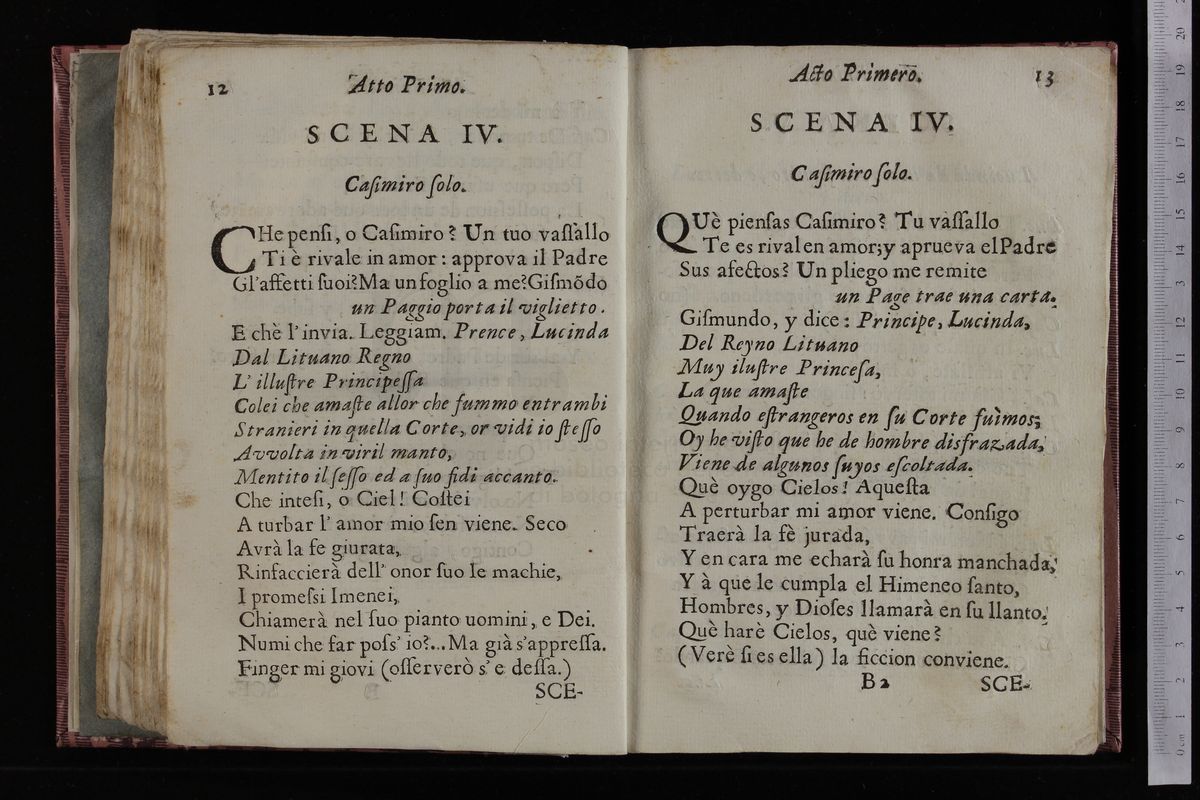 12 Atto Primo.
SCENA IV.
Caſimiro ſolo.
CHe penſi, o Caſimiro? Un tuo vaſſallo
Ti è rivale in amor: approva il Padre
Gl'affetti ſuoi? Ma un foglio a me? Giſmõdo
un Paggio porta il viglietto.
E chè l'invia. Leggiam. Prence, Lucinda
Dal Lituano Regno
L' illuſtre Principeſſa
Colei che amaſte allor che fummo entrambi
Stranieri in quella Corte, or vidi io ſteſſo
Avvolta in viril manto,
Mentito il ſeſſo ed a ſuo fidi accanto.
Che inteſi, o Ciel! Coſtei
A turbar l' amor mio ſen viene. Seco
Avrà la fe giurata,
Rinfaccierà dell' onor ſuo le machie,
I promeſsi Imenei,
Chiamerà nel ſuo pianto uomini, e Dei.
Numi che far poſs' io?... Ma già s'appreſſa.
Finger mi giovi (oſſerverò s' e deſſa.)
SCE-
Acto Primero. 13
SCENA IV.
Caſimiro ſolo.
QUè pienſas Caſimiro? Tu vaſſallo
Te es rival en amor; y aprueva el Padre
Sus afectos? Un pliego me remite
un Page trae una carta.
Giſmundo, y dice: Principe, Lucinda,
Del Reyno Lituano
Muy iluſtre Princeſa,
La que amaſte
Quando eſtrangeros en ſu Corte fuìmos;
Oy he viſto que he de hombre disfrazada,
Viene de algunos ſuyos eſcoltada.
Què oygo Cielos! Aqueſta
A perturbar mi amor viene. Conſigo
Traerà la fè jurada,
Y en cara me echarà ſu honra manchada,
Y à que le cumpla el Himeneo ſanto,
Hombres, y Dioſes llamarà en ſu llanto.
Què harè Cielos, què viene?
(Verè ſi es ella) la ficcion conviene.
B2 SCE-